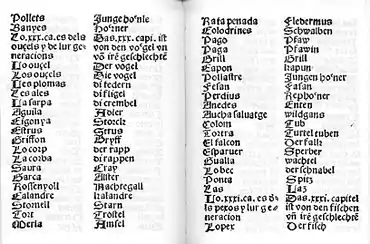 Pollets
Banyes
Lo.xxx.ca. es dels
oucels y de lur ge-
neracions
Lo oucel
Los oucels
Les plomas
Les ales
La sarpa
Aguila
Cigonya
Estrus
Griffon
Lo corp
La corba
Saura
Garca
Rossenyoll
Calandre
Stornell
Tort
Merla
Junge ho'nle
ho'rner
Das .xxx. capi. ist
von den vo'gel vn̄
vō irē geschlechtē
Der vogel
Die vogel
di federn
di flígel
di crembel
Adler
Storck
Strus
Gryff
der rapp
di rappen
Cray
Alster
Nachtegall
kalandre
Starn
Trostel
Amsel
Rata penada
Colodrines
Pago
Paga
Grill
Capon
Pollastre
Fesan
Perdius
Anedes
Aucha saluatge
Colom
Tortra
El falcon
Esparuer
Gualla
Lobec
Ponta
Las
Lo.xxxi.ca. es d's
pexos y lur ge-
neracion
Lo pex
Fledermus
Schwalben
Pfaw
Pfawin
Grill
kapun
Jungen ho'ner
Fasan
Repho'ner
Enten
wildgans
Tub
Turtel tuben
Der falk
Sperber
wachtel
der schnabel
Spitz
Das .xxxi. capitel
ist von den fischen
vn̄ irē geschlechtē
Der fisch